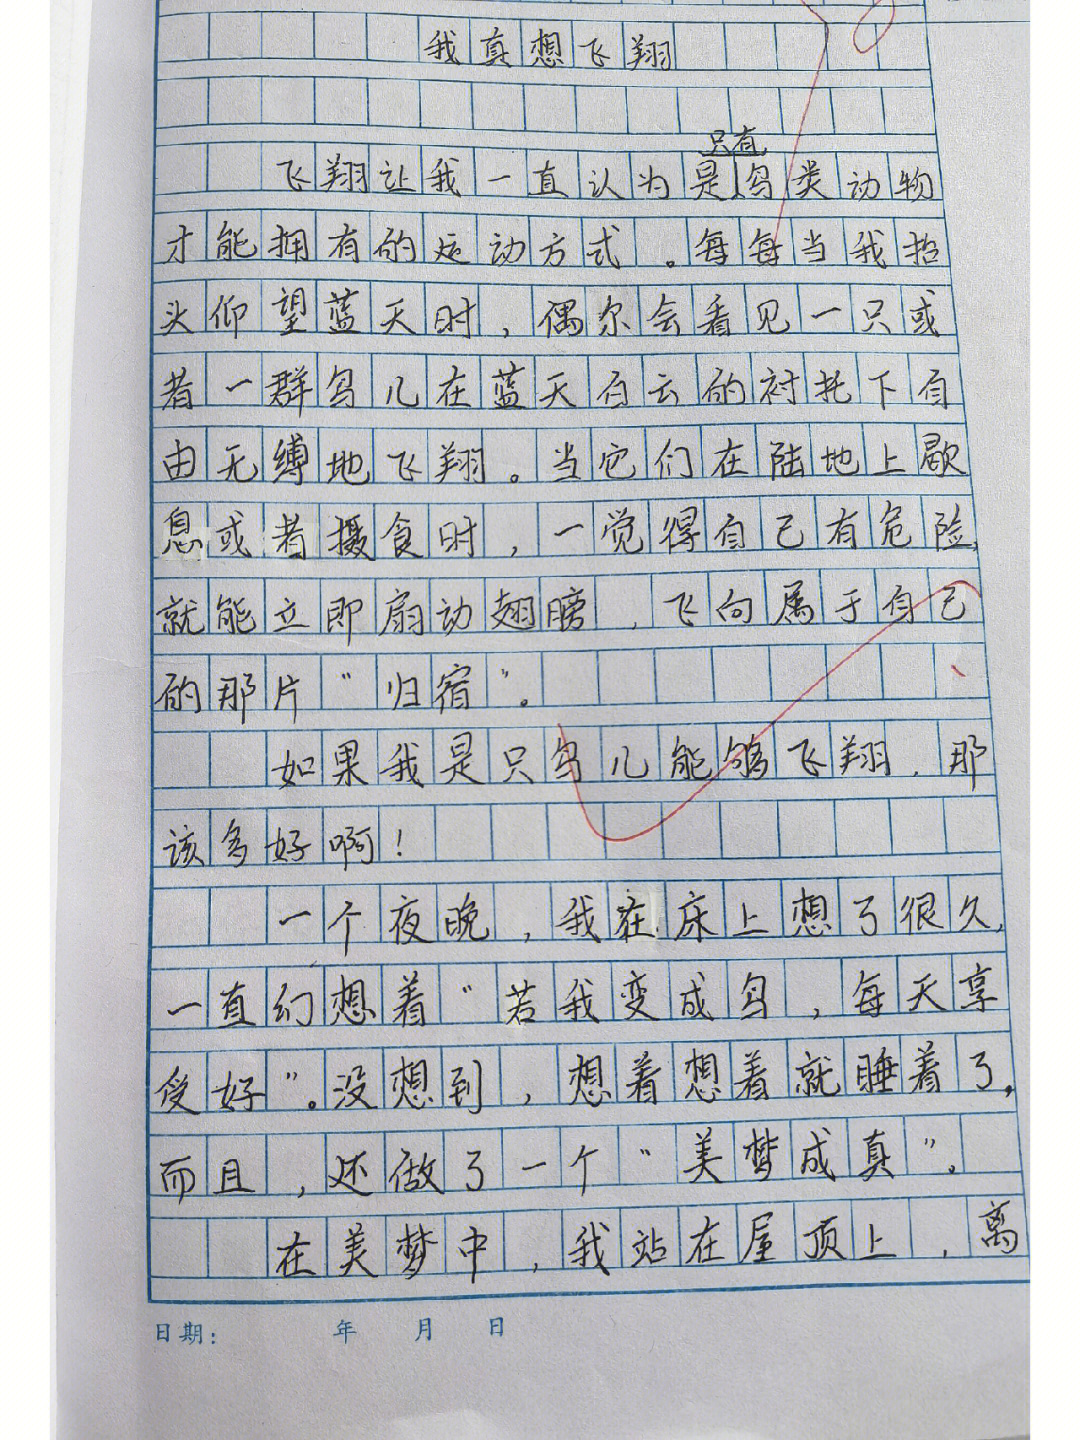 我真想飞翔
只有
飞翔让我一直认为是鸟类动物
才能拥有的运动方式。每每当我抬
头仰望蓝天时，偶尔会看见一只或
者一群鸟儿在蓝天白云的衬托下自
由无缚地飞翔。当它们在陆地上歇
息或者摄食时，一觉得自己有危险，
就能立即扇动翅膀，飞向属于自己
的那片“归宿”。
如果我是只鸟儿能够飞翔，那
该多好啊！
一个夜晚，我在床上想了很久，
一直幻想着“若我变成鸟，每天享
受好”。没想到，想着想着就睡着了。
而且，还做了一个“美梦成真”。
在美梦中，我站在屋顶上，离
日期： 年 月 日